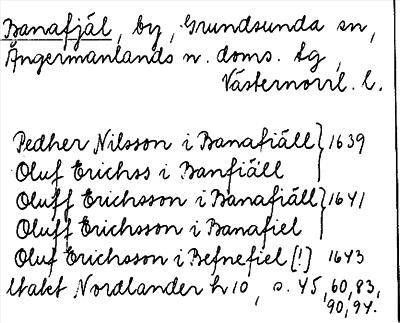 Banafjäl, by, Grundsunda sn,
Ångermanlands n. doms. tg,
Västernorrl. l.
Pedher Nilsson i Banafiäll } 1639
Oluf Erichss i Banfiäll
Oluff Erichsson i Banafiäll } 1641
Oluff Erichsson i Banafiel
Oluf Erichsson i Befnefiel [!] 1643
Utakt Nordlander h 10, s. 45, 60, 83,
90, 94.